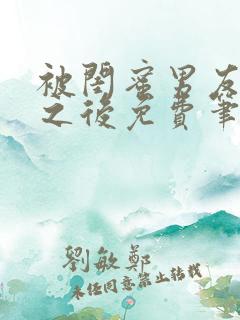 被閨蜜男友
之後免費筆
劉敏鄭
未经同意禁止转载